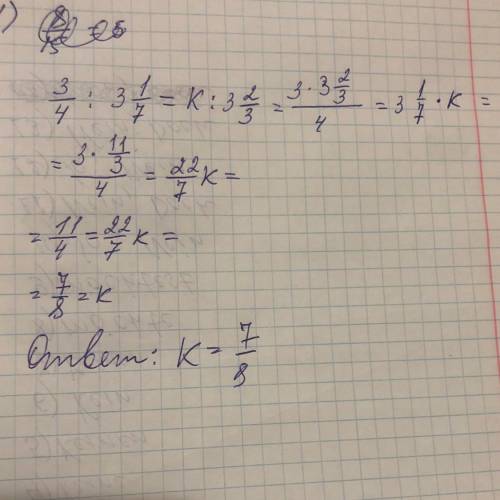 3/4 : 3 1/7 = К : 3 2/3 = (3 · 3 2/3)/4 = 3 1/7 · К =
= (3 · 11/3)/4 = 22/7 К =
= 11/4 = 22/7 К =
= 7/8 = К
Ответ: К = 7/8